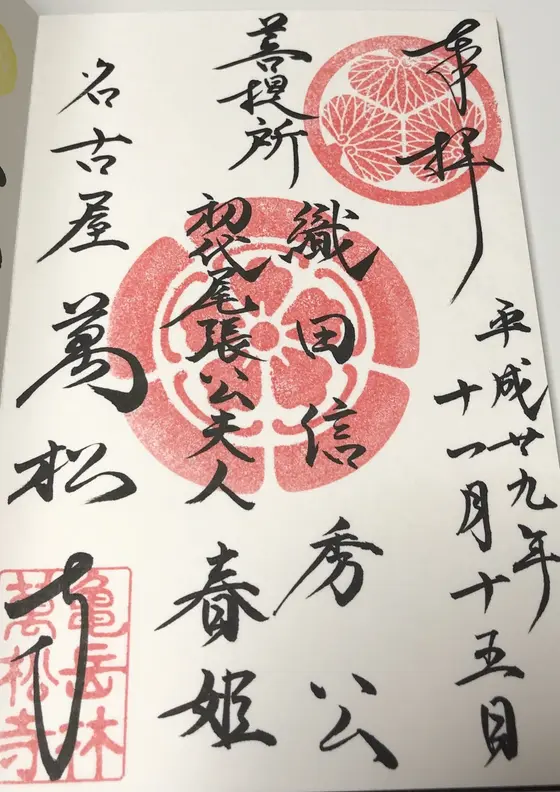 奉拝
平成廿九年
十一月十五日
菩提所
織田信秀公
初代尾張公夫人
春姫
名古屋
萬松寺
亀岳林
萬松寺